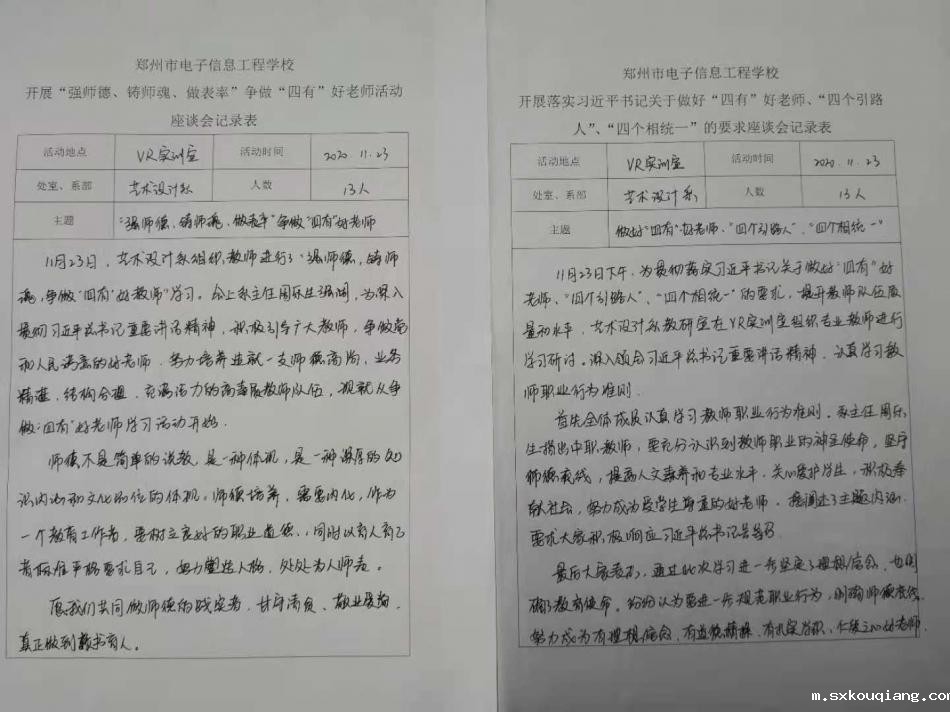 郑州市电子信息工程学校
开展“强师德、铸师魂、做表率”争做“四有”好老师活动
座谈会记录表
活动地点 VR实训室 活动时间 2020.11.23
处室、系部 艺术设计系 人数 13人
主题 “强师德、铸师魂、做表率”争做“四有”好老师
11月23日，艺术设计系组织教师进行了“强师德，铸师
魂，争做“四有”好教师”学习。会上系主任周乐生强调，为深入
贯彻习近平总书记重要讲话精神，积极引导广大教师，争做党
和人民满意的好老师，努力培养造就一支师德高尚，业务
精湛，结构合理，充满活力的高素质教师队伍，现就从争
做“四有”好老师学习活动开始。
师德不是简单的说教，是一种体现，是一种深厚的知
识内涵和文化品位的体现。师德培养，需要内化，作为
一个教育工作者，要树立良好的职业道德，同时以育人育己
标准严格要求自己，努力塑造人格，处处为人师表。
愿我们共同做师德的践定者，甘守清贫、敬业爱岗，
真正做到教书育人。
郑州市电子信息工程学校
开展落实习近平书记关于做好“四有”好老师、“四个引路
人”、“四个相统一”的要求座谈会记录表
活动地点 VR实训室 活动时间 2020.11.23
处室、系部 艺术设计系 人数 13人
主题 做好“四有”好老师、“四个引路人”、“四个相统一”
11月23日下午，为贯彻落实习近平书记关于做好“四有”好
老师、“四个引路人”、“四个相统一”的要求，提升教师队伍质
量和水平，艺术设计系教研室在VR实训室组织专业教师进行
学习研讨。深入领会习近平总书记重要讲话精神，认真学习教
师职业行为准则。
首先全体成员认真学习教师职业行为准则。系主任周乐
生指出中职教师，要充分认识到教师职业的神圣使命，坚守
师德底线，提高人文素养和专业水平，关心爱护学生，积极奉
献社会，努力成为受学生尊重的好老师。并阐述了主题内涵，
要求大家积极响应习近平总书记号召。
最后大家表示，通过此次学习进一步坚定了理想信念，也明
确了教育使命。纷纷认为要进一步规范职业行为，明确师德底线，
努力成为有理想信念、有道德情操、有扎实学识、仁爱之心好老师
m.sxkouqiang.com